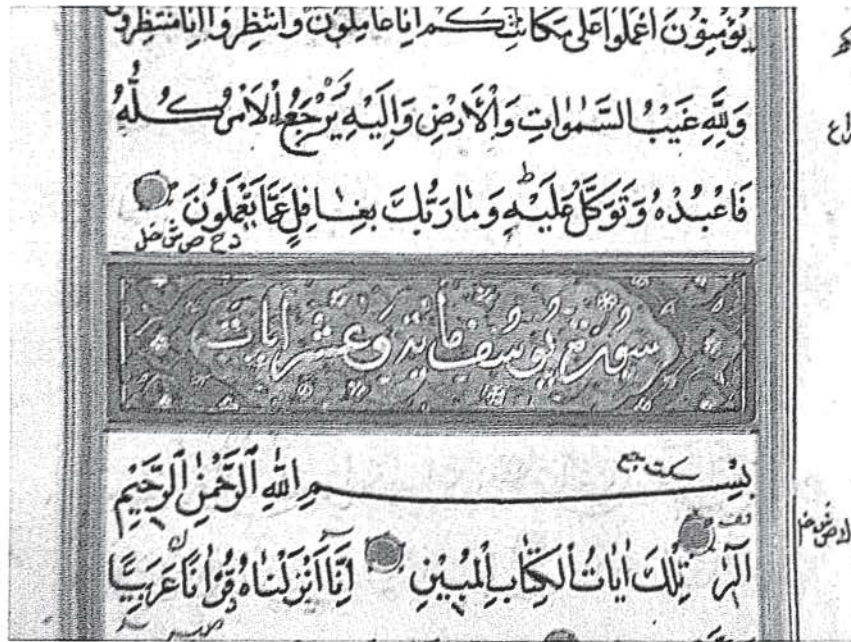 يُؤْمِنُونَ اعْمَلُوا عَلَى مَكَانَتِكُمْ اِنَّا عَامِلُونَ وَانْتَظِرُوا اِنَّا مُنْتَظِرُونَ
وَلِلّٰهِ غَيْبُ السَّمٰوَاتِ وَالْاَرْضِ وَاِلَيْهِ يُرْجَعُ الْاَمْرُ كُلُّهُ
فَاعْبُدْهُ وَتَوَكَّلْ عَلَيْهِ وَمَا رَبُّكَ بِغَافِلٍ عَمَّا يَعْمَلُونَ
سورة يوسف ماية وعشر ايات
سكت جميع
بِسْمِ اللّٰهِ الرَّحْمٰنِ الرَّحِيمِ
الٓرٰ تِلْكَ اٰيَاتُ الْكِتَابِ الْمُبِيْنِ اِنَّٓا اَنْزَلْنَاهُ قُرْاٰنًا عَرَبِيًّا